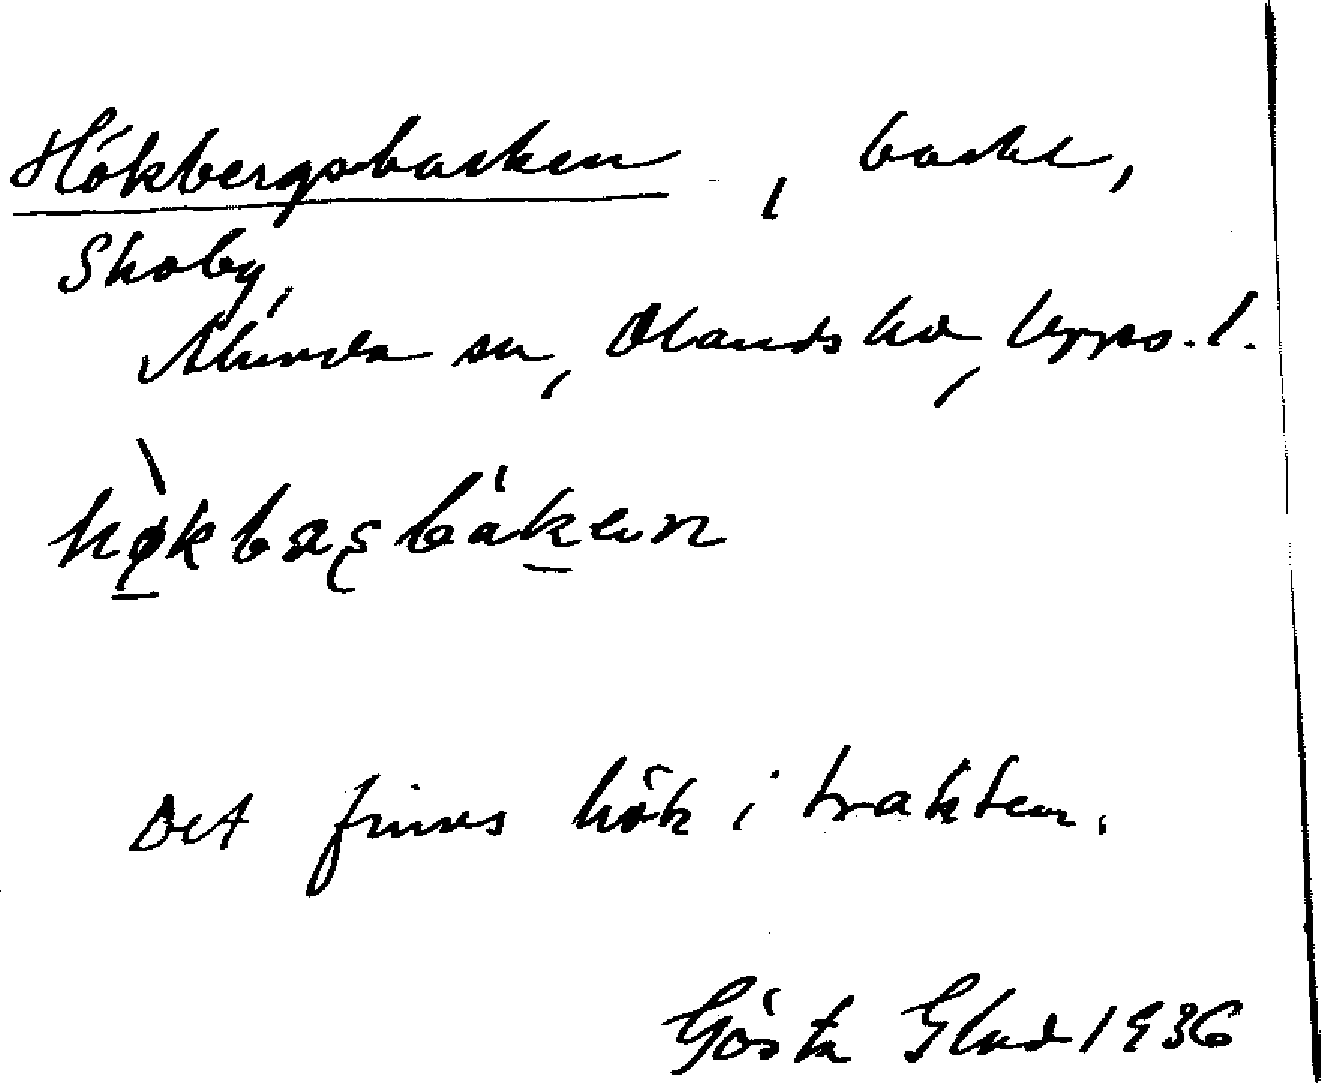 Hökbergsbacken, backe,
Skoby,
Alunda sn, Olands hd, Upps. l.
Det finns hök i trakten.
Gösta Glad 1936